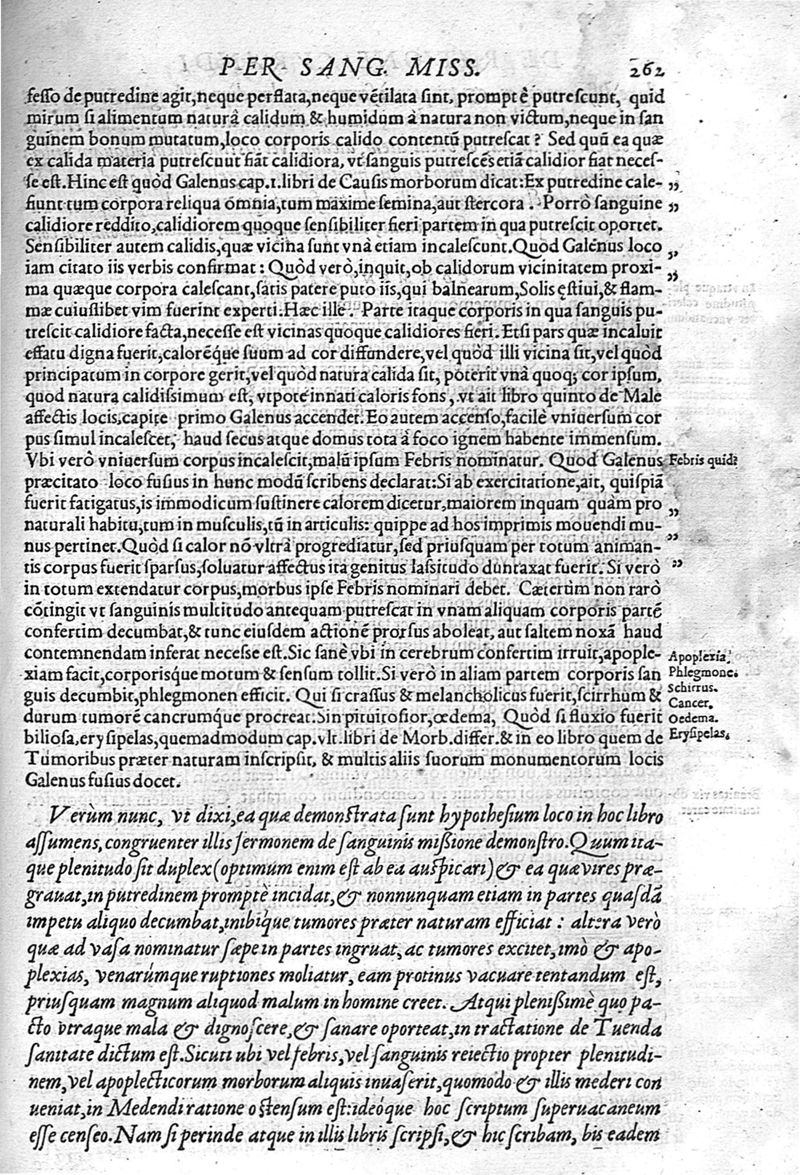 PER SANG. MISS. 262
fesso de putredine agit, neque perflata, neque vẽtilata sint, promptè putrescunt, quid
mirum si alimentum naturâ calidum & humidum à natura non victum, neque in san
guinem bonum mutatum, loco corporis calido contentũ putrescat? Sed quũ ea quæ
ex calida materia putrescunt fiãt calidiora, vt sanguis putrescẽs etiã calidior fiat neces-
se est. Hinc est quòd Galenus cap. 1. libri de Causis morborum dicat: Ex putredine cale- „
fiunt tum corpora reliqua omnia, tum maxime semina, aut stercora. Porrò sanguine „
calidiore reddito, calidiorem quoque sensibiliter fieri partem in qua putrescit oportet.
Sensibiliter autem calidis, quæ vicina sunt vnà etiam incalescunt. Quòd Galenus loco „
iam citato iis verbis confirmat: Quòd verò, inquit, ob calidorum vicinitatem proxi- „
ma quæque corpora calescant, satis patere puto iis, qui balnearum, Solis ęstiui, & flam-
mæ cuiuslibet vim fuerint experti. Hæc ille. Parte itaque corporis in qua sanguis pu-
trescit calidiore facta, necesse est vicinas quoque calidiores fieri. Etsi pars quæ incaluit
effatu digna fuerit, calorémque suum ad cor diffundere, vel quòd illi vicina sit, vel quòd
principatum in corpore gerit, vel quòd natura calida sit, poterit vnà quoq; cor ipsum,
quod natura calidissimum est, vtpote innati caloris fons, vt ait libro quinto de Male
affectis locis, capite primo Galenus accendet. Eo autem accenso, facilè vniuersum cor
pus simul incalescet, haud secus atque domus tota à foco ignem habente immensum.
Vbi verò vniuersum corpus incalescit, malũ ipsum Febris nominatur. Quod Galenus Febris quid?
præcitato loco fusius in hunc modũ scribens declarat: Si ab exercitatione, ait, quispiã
fuerit fatigatus, is immodicum sustinere calorem dicetur, maiorem inquam quàm pro „
naturali habitu, tum in musculis, tũ in articulis: quippe ad hos imprimis mouendi mu- „
nus pertinet. Quòd si calor nõ vltrà progrediatur, sed priusquam per totum animan-
tis corpus fuerit sparsus, soluatur affectus ita genitus lassitudo duntaxat fuerit. Si verò „
in totum extendatur corpus, morbus ipse Febris nominari debet. Cæterùm non rarò
cõtingit vt sanguinis multitudo antequam putrescat in vnam aliquam corporis partẽ
confertim decumbat, & tunc eiusdem actionẽ prorsus aboleat, aut saltem noxã haud
contemnendam inferat necesse est. Sic sanè vbi in cerebrum confertim irruit, apople- Apoplexia.
xiam facit, corporisque motum & sensum tollit. Si verò in aliam partem corporis san Phlegmone.
guis decumbit, phlegmonen efficit. Qui si crassus & melancholicus fuerit, scirrhum & Schirrus.
durum tumorẽ cancrumq́ue procreat: Sin pituitosior, œdema, Quòd si fluxio fuerit Cancer.
Oedema.
biliosa, erysipelas, quemadmodum cap. vlt. libri de Morb. differ. & in eo libro quem de Erysipelas.
Tumoribus præter naturam inscripsit, & multis aliis suorum monumentorum locis
Galenus fusius docet.
Verùm nunc, vt dixi, ea quæ demonstrata sunt hypothesium loco in hoc libro
assumens, congruenter illis sermonem de sanguinis missione demonstro. Quum ita-
que plenitudo sit duplex (optimum enim est ab ea auspicari) & ea quæ vires præ-
grauat, in putredinem promptè incidat, & nonnunquam etiam in partes quasdã
impetu aliquo decumbat, inibíque tumores præter naturam efficiat: altera verò
quæ ad vasa nominatur sæpe in partes ingruat, ac tumores excitet, imò & apo-
plexias, venarúmque ruptiones moliatur, eam protinus vacuare tentandum est,
priusquam magnum aliquod malum in homine creet. Atqui plenissimè quo pa-
cto vtraque mala & dignoscere, & sanare oporteat, in tractatione de Tuenda
sanitate dictum est. Sicuti ubi vel febris, vel sanguinis reiectio propter plenitudi-
nem, vel apoplecticorum morborum aliquis inuaserit, quomodo & illis mederi con
ueniat, in Medendi ratione ostensum est: ideóque hoc scriptum superuacaneum
esse censeo. Nam si perinde atque in illis libris scripsi, & hic scribam, bis eadem